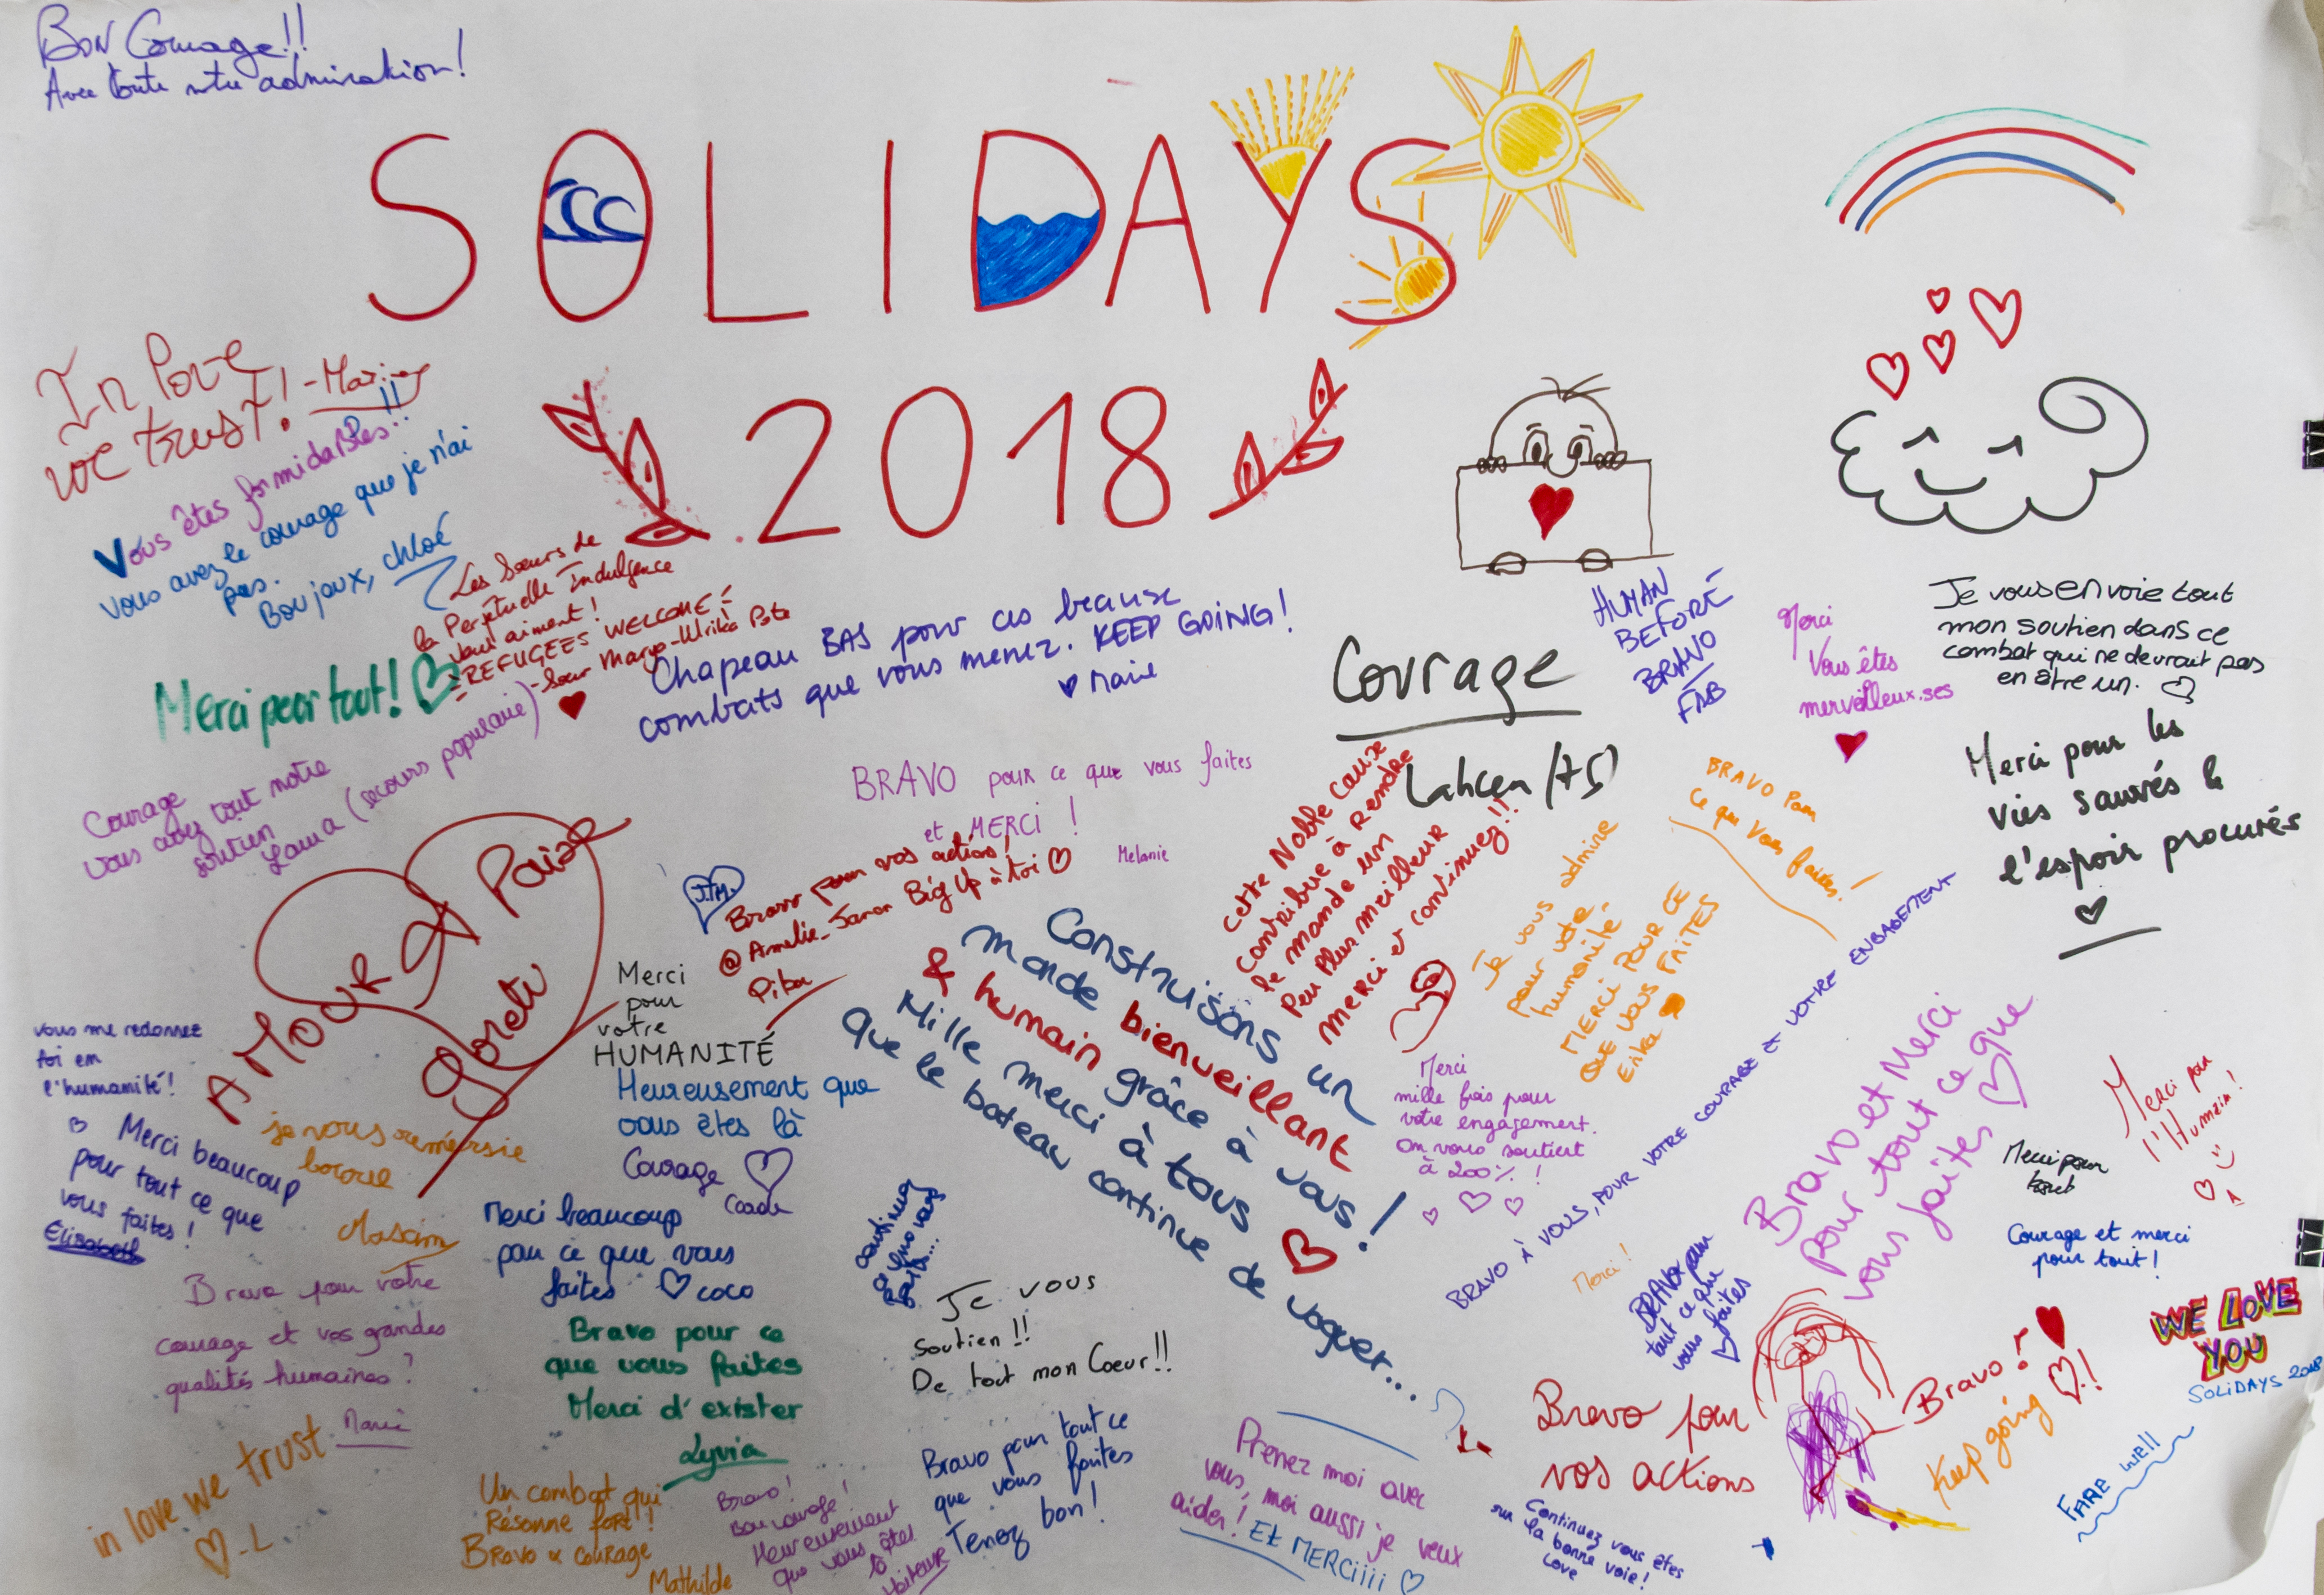 Bon Courage!!
Avec toute notre admiration!
SOLIDAYS
2018
In love
we trust!
Vous êtes formidables!!
vous avez le courage que je n'ai
pas.
Boujoux, chloé
Les Sœurs de
la Perpétuelle Indulgence
vous aiment!
=REFUGEES WELCOME=
-Sœur Marye-Ulrika Pote
Merci pour tout!
Chapeau BAS pour ces beause
combats que vous menez. KEEP GOING!
Marie
Courage
vous avez tout notre
soutien
Laura (secours populaire)
HUMAN
BEFORE
BRAVO
FAB
Courage
Lahcen (75)
Merci
Vous êtes
merveilleux.ses
Je vous envoie tout
mon soutien dans ce
combat qui ne devrait pas
en être un.
Merci pour les
vies sauvés &
l'espoir procurés
BRAVO pour ce que vous faites
et MERCI !
Melanie
J.T.M.
Bravo pour vos actions,
Big Up à toi
Pika
Cette Noble Cause
contribue à Rendre
le monde un
Peu Plus meilleur
merci et continuez!!
BRAVO Pour
ce que vous faites!
Je vous admire
pour votre
humanité.
MERCI POUR CE
QUE VOUS FAITES
Erika
BRAVO À VOUS, POUR VOTRE COURAGE ET VOTRE ENGAGEMENT
AMOUR & Paix
Merci
pour
votre
HUMANITÉ
vous me redonnez
foi en
l'humanité!
Construisons un
monde bienveillant
& humain grâce à vous!
Mille merci à tous
Que le bateau continue de voguer...
Heureusement que
vous êtes là
Courage
Merci
mille fois pour
votre engagement.
On vous soutient
à 200% !
Bravo et Merci
pour tout ce que
vous faites
Merci pour
l'Humain!
Merci pour
tout
Courage et merci
pour tout!
Merci beaucoup
pour tout ce que
vous faites!
Elisabeth
je vous remersie
Massim
Merci beaucoup
pour ce que vous
faites coco
Merci!
BRAVO pour
tout ce que
vous faites
Je vous
soutien!!
De tout mon Coeur!!
Bravo pour votre
courage et vos grandes
qualités humaines!
Marie
Bravo pour ce
que vous faites
Merci d'exister
Lyvia
WE LOVE
YOU
SOLIDAYS 2018
Bravo pour
vos actions
Bravo!
Keep going!
FARE well
in love we trust
-L
Un combat qui
Résonne fort!
BRAVO & COURAGE
Mathilde
Bravo!
Bon courage!
Heureusement
que vous êtes
là
Bravo pour tout ce
que vous faites
Tenez bon!
Prenez moi avec
vous, moi aussi je veux
aider! Et MERCiiii
Continuez vous êtes
sur la bonne voie!
Love